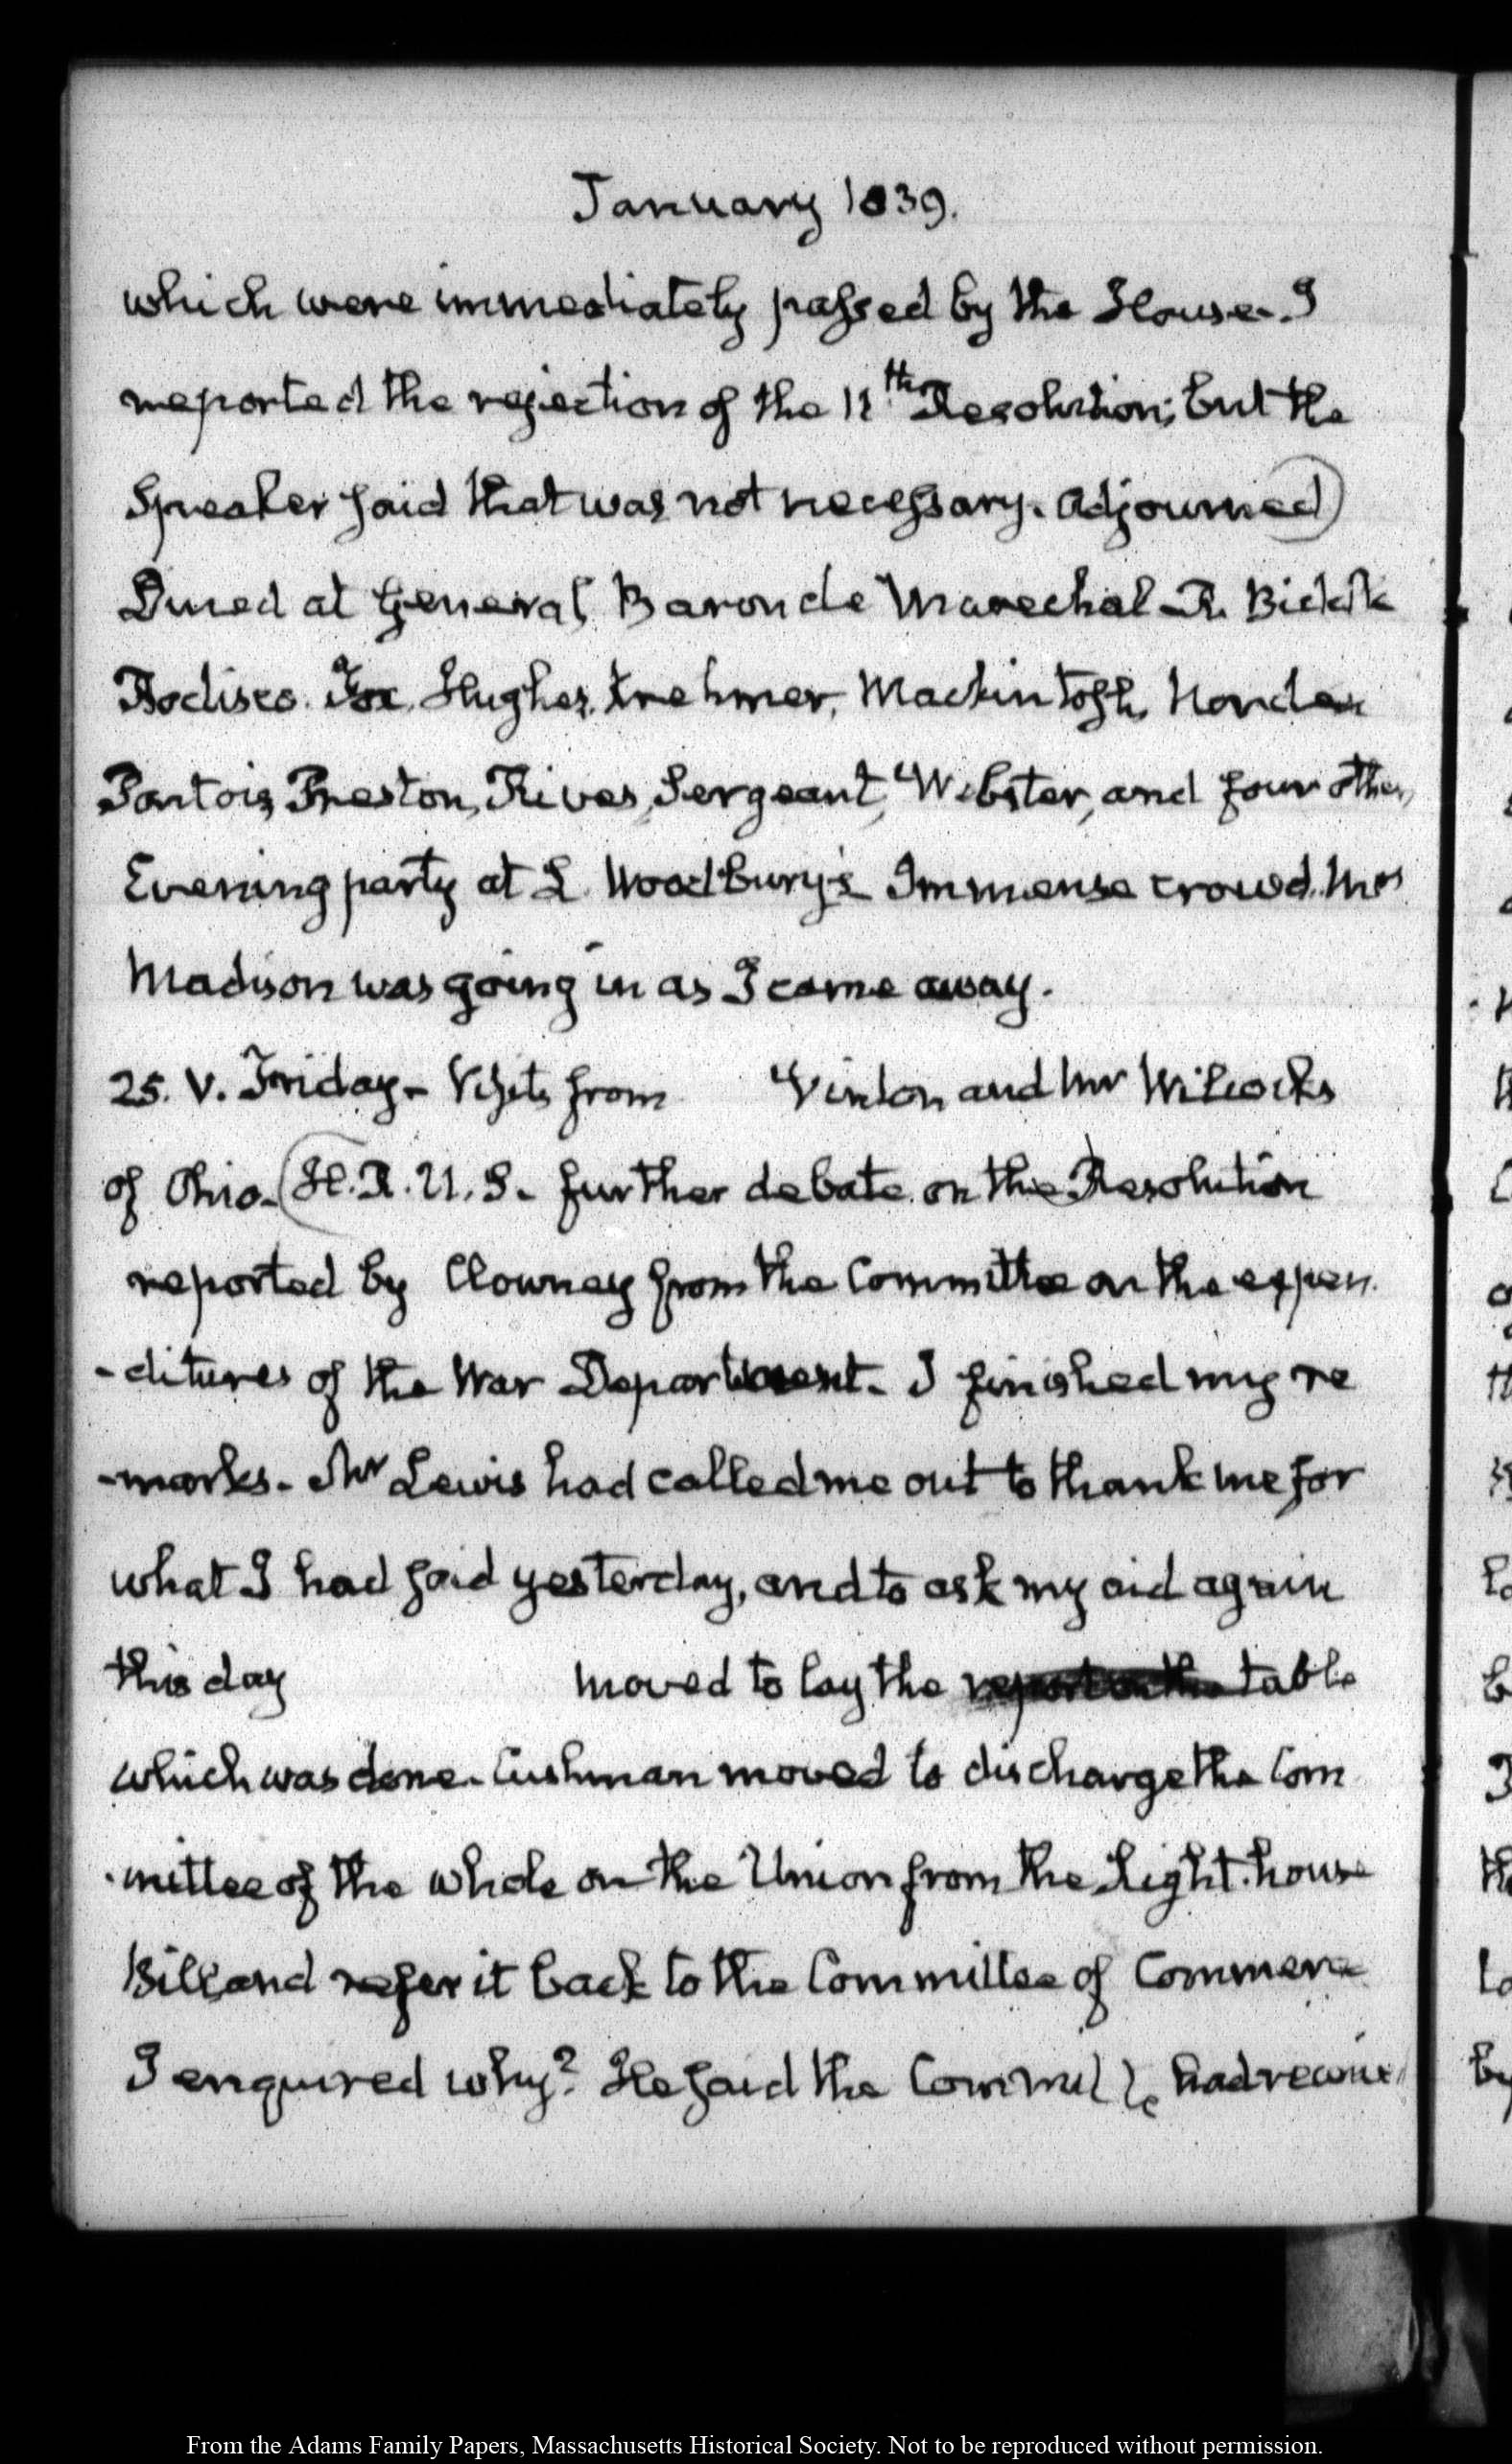 January 1839.
which were immediately passed by the House. I
reported the rejection of the 11th Resolution; but the
Speaker said that was not necessary. adjourned)
Dined at General Baron de Marechal R.
Bodisco. Fox, Hughes, Krehmer, Mackintosh,
Pontois, Preston, Rives, Sergeant, Webster, and four others
Evening party at L Woodbury's Immense crowd. Mrs
Madison was going in as I came away.
25. V. Friday- Visits from Vinton and Mr Wilcocks
of Ohio. (H.R.U.S. further debate on the Resolution
reported by Clowney from the Committee on the expen
-ditures of the War Department. I finished my re
-marks. Mr Lewis had called me out to thank me for
what I had said yesterday, and to ask my aid again
this day moved to lay the report on the table
which was done. Cushman moved to discharge the Com
-mittee of the whole on the Union from the Light.house
Bill and refer it back to the Committee of Commerce
I enquired why? He said the Committee had receive
From the Adams Family Papers, Massachusetts Historical Society. Not to be reproduced without permission.